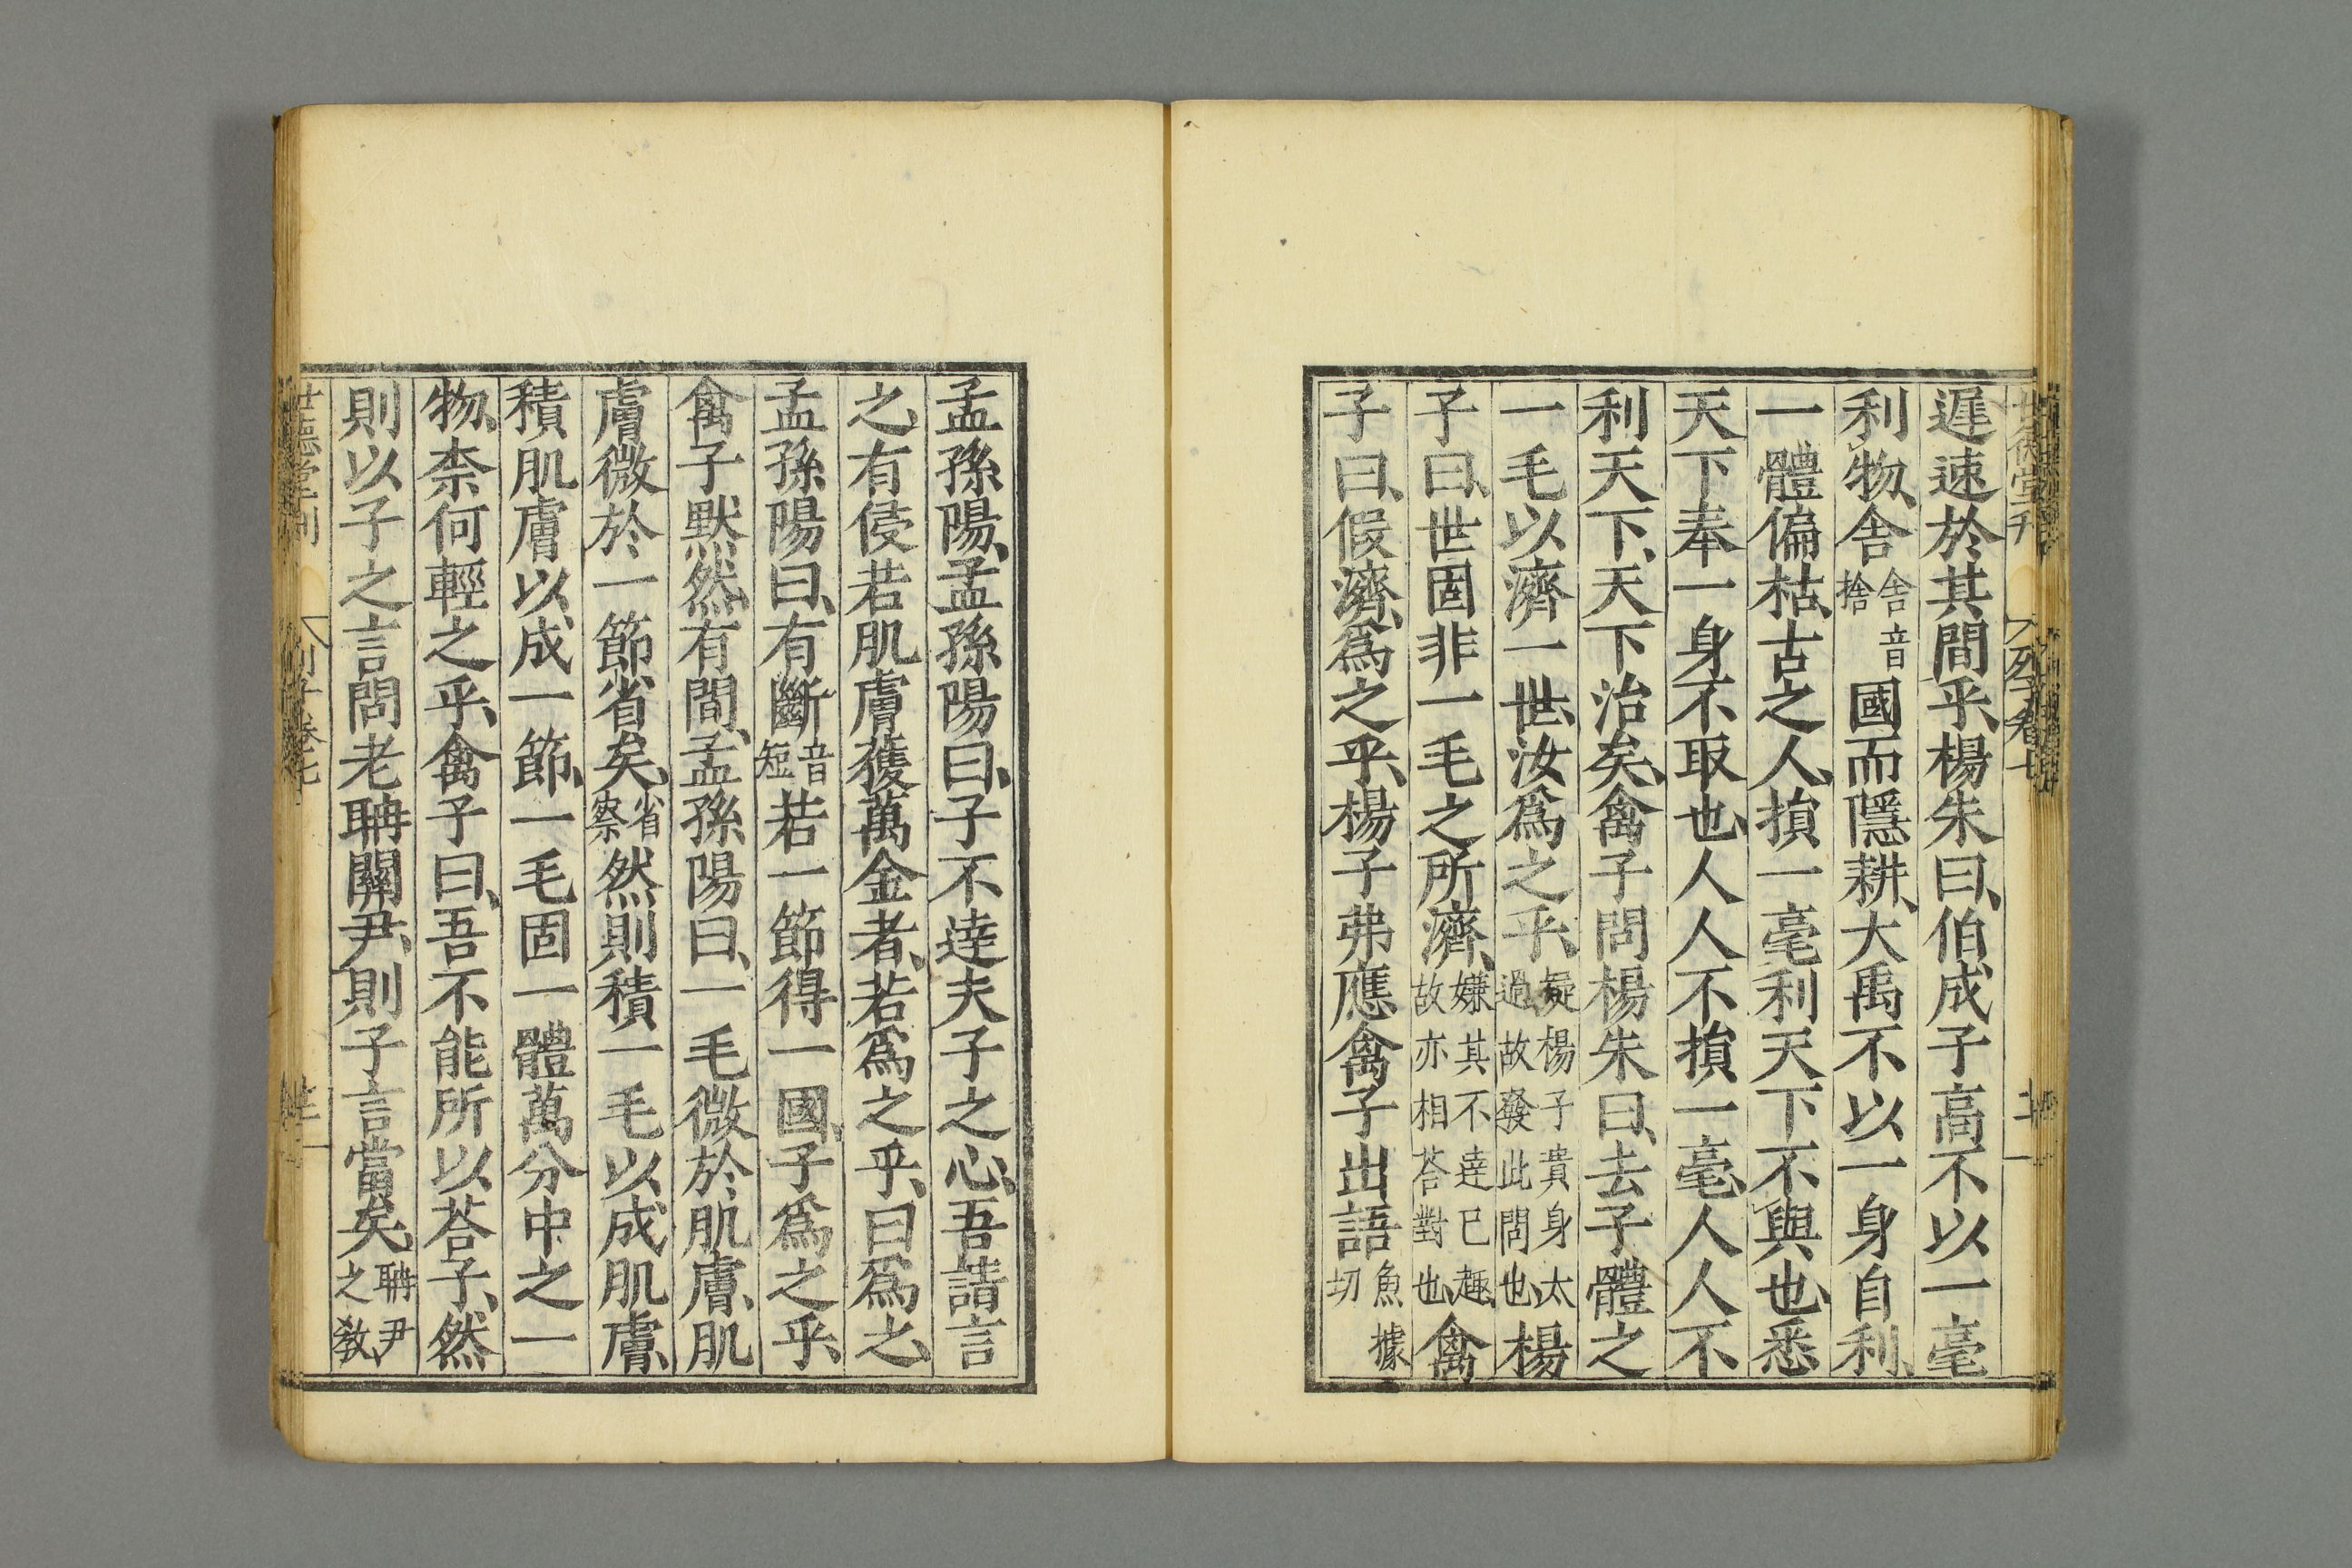 遲速於其間乎、楊朱曰、伯成子高不以一毫
利物、舍舍音捨國而隱耕、大禹不以一身自利、
一體偏枯、古之人、損一毫利天下不與也、悉
天下奉一身不取也、人人不損一毫、人人不
利天下、天下治矣、禽子問楊朱曰、去子體之
一毛以濟一世、汝爲之乎、疑楊子貴身太過故發此問也、楊
子曰、世固非一毛之所濟、嫌其不達己趣、故亦相荅對也、禽
子曰、假濟、爲之乎、楊子弗應禽子出語魚據切
孟孫陽、孟孫陽曰、子不達夫子之心、吾請言
之、有侵若肌膚獲萬金者、若爲之乎、曰爲之、
孟孫陽曰、有斷音短若一節得一國、子爲之乎、
禽子默然、有間、孟孫陽曰、一毛微於肌膚、肌
膚微於一節、省矣、省察然則積一毛以成肌膚、
積肌膚以成一節、一毛固一體萬分中之一
物、柰何輕之乎、禽子曰、吾不能所以荅子、然
則以子之言問老聃關尹、則子言當矣、聃尹之敎、
世德堂刊
列子卷七